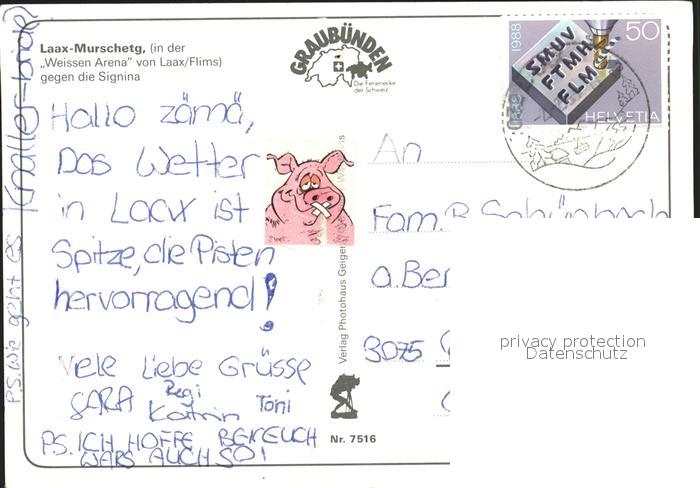 Laax-Murschetg, (in der
„Weissen Arena" von Laax/Flims)
gegen die Signina
GRAUBÜNDEN
Die Ferienecke
der Schweiz
1988
50
SMUV
FTMH
FLM
HELVETIA
Hallo zämä,
Das Wetter
in Laax ist
Spitze, die Pisten
hervorragend!
Viele Liebe Grüsse
SARA Regi Katrin Toni
P.S. ICH HOFFE BEI EUCH
WARS AUCH SO!
P.S. Wie geht es
An
Fam. R.
a. Ber
3075
Verlag Photohaus Geiger
Nr. 7516
privacy protection
Datenschutz